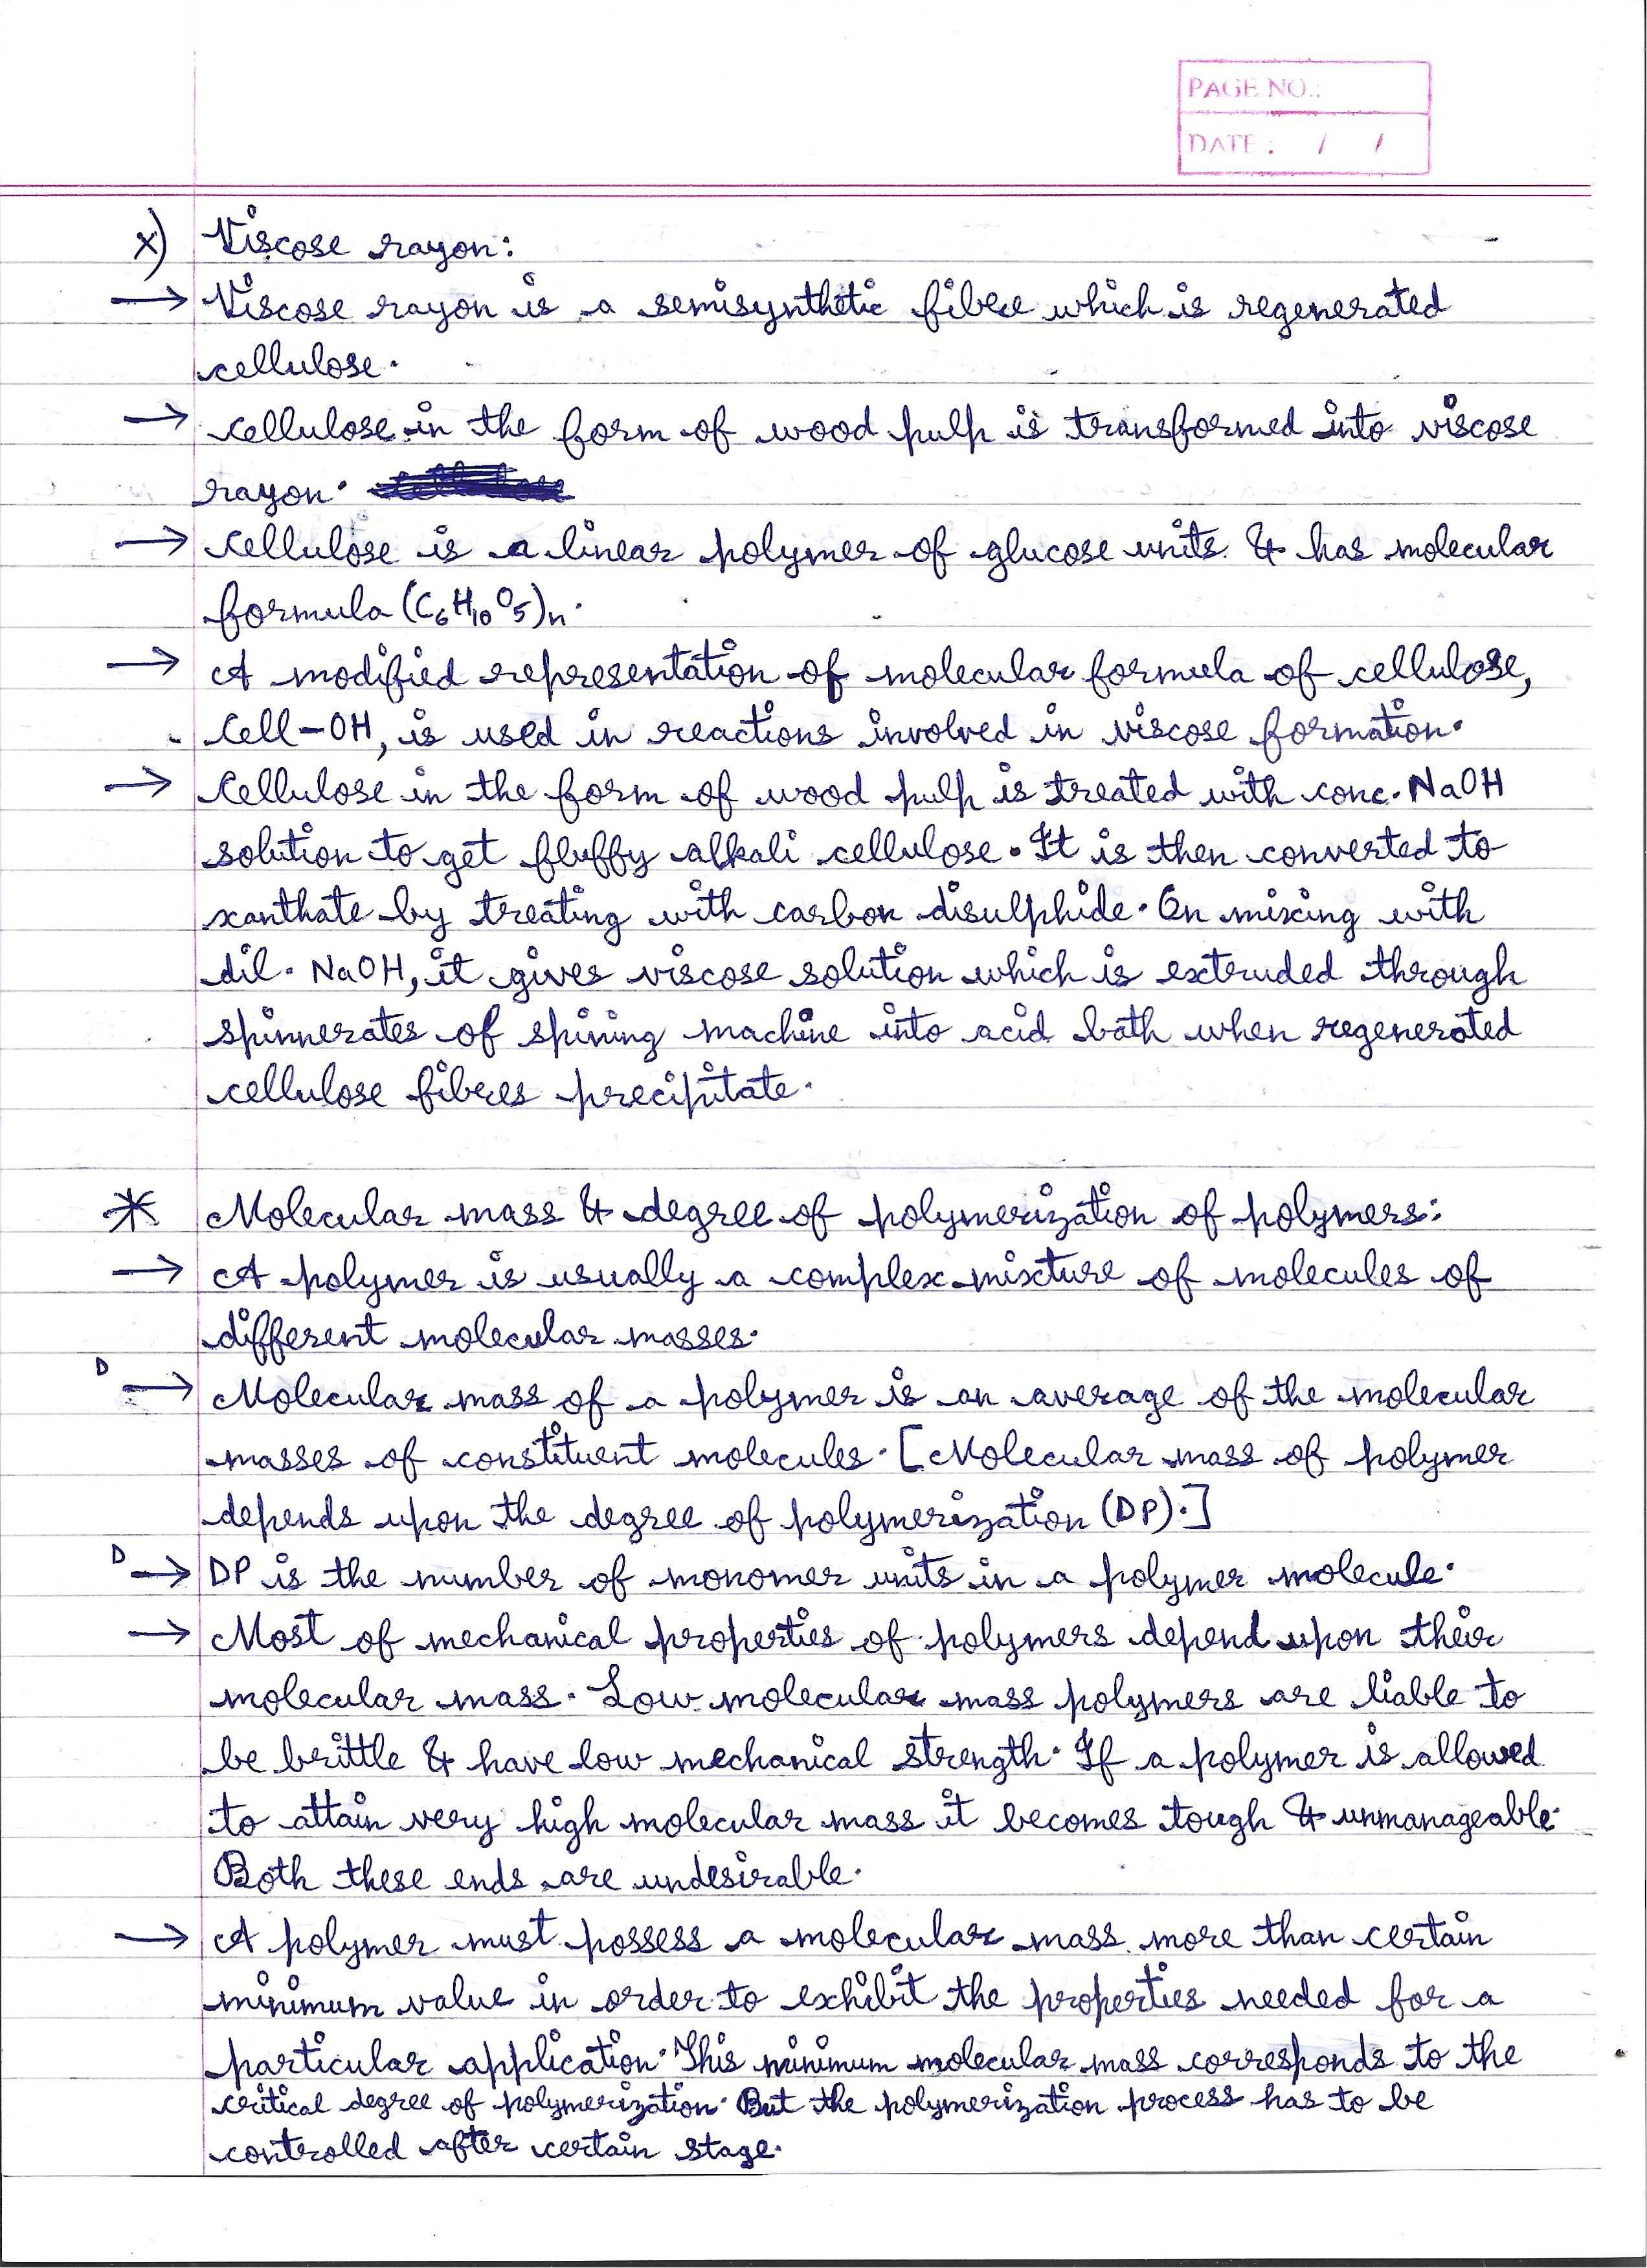 PAGE NO.:
DATE: / /
x) Viscose rayon:
→ Viscose rayon is a semisynthetic fibre which is regenerated
cellulose.
→ Cellulose in the form of wood pulp is transformed into viscose
rayon.
→ Cellulose is a linear polymer of glucose units & has molecular
formula (C₆H₁₀O₅)ₙ.
→ A modified representation of molecular formula of cellulose,
Cell-OH, is used in reactions involved in viscose formation.
→ Cellulose in the form of wood pulp is treated with conc. NaOH
solution to get fluffy alkali cellulose. It is then converted to
xanthate by treating with carbon disulphide. On mixing with
dil. NaOH, it gives viscose solution which is extruded through
spinnerates of spining machine into acid bath when regenerated
cellulose fibres precipitate.
* Molecular mass & degree of polymerization of polymers:
→ A polymer is usually a complex mixture of molecules of
different molecular masses.
D → Molecular mass of a polymer is an average of the molecular
masses of constituent molecules. [Molecular mass of polymer
depends upon the degree of polymerization (DP).]
D → DP is the number of monomer units in a polymer molecule.
→ Most of mechanical properties of polymers depend upon their
molecular mass. Low molecular mass polymers are liable to
be brittle & have low mechanical strength. If a polymer is allowed
to attain very high molecular mass it becomes tough & unmanageable.
Both these ends are undesirable.
→ A polymer must possess a molecular mass more than certain
minimum value in order to exhibit the properties needed for a
particular application. This minimum molecular mass corresponds to the
critical degree of polymerization. But the polymerization process has to be
controlled after certain stage.